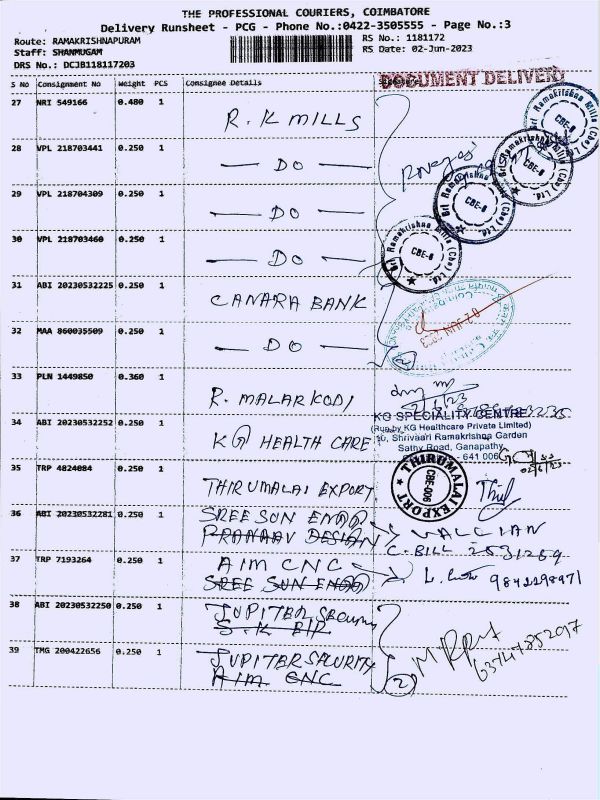 THE PROFESSIONAL COURIERS, COIMBATORE
Delivery Runsheet - PCG - Phone No.:0422-3505555 - Page No.:3
Route: RAMAKRISHNAPURAM
RS No.: 1181172
Staff: SHANMUGAM
RS Date: 02-Jun-2023
DRS No.: DCJB118117203
S No Consignment No Weight PCS Consignee Details
DOCUMENT DELIVERY
27 NRI 549166 0.480 1 R. K MILLS
28 VPL 218703441 0.250 1 — DO —
29 VPL 218704309 0.250 1 — DO —
30 VPL 218703460 0.250 1 — DO —
Sri Ramakrishna Mills (Cbe) Ltd.
CBE-6
Sri Ramakrishna Mills (Cbe) Ltd.
CBE-6
Sri Ramakrishna Mills (Cbe) Ltd.
CBE-6
Sri Ramakrishna Mills (Cbe) Ltd.
CBE-6
31 ABI 20230532225 0.250 1 CANARA BANK
02 JUN 2023
32 MAA 860035509 0.250 1 — DO —
2
33 PLN 1449850 0.360 1 R. MALARKODI
34 ABI 20230532252 0.250 1 KG HEALTH CARE
KG SPECIALITY CENTRE
(Run by KG Healthcare Private Limited)
Shrivaari Ramakrishna Garden
Sathy Road, Ganapathy
- 641 006
35 TRP 4824084 0.250 1 THIRUMALAI EXPORT
THIRUMALAI EXPORT
CBE-006
36 ABI 20230532281 0.250 1 SREE SUN ENGG
PRANAAV DESIGN
C. BILL
37 TRP 7193264 0.250 1 AIM CNC
SREE SUN ENGG
38 ABI 20230532250 0.250 1 JUPITER SECURITY
39 TMG 200422656 0.250 1 JUPITER SECURITY
AIM CNC
2